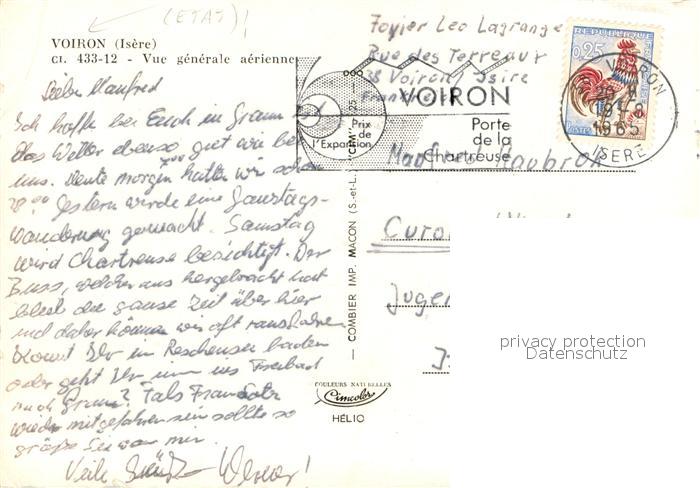 (ETAT)!
VOIRON (Isère)
Cl. 433-12 - Vue générale aérienne
Lieber Manfred
Ich hoffe bei Euch in Graun ist
das Wetter ebenso gut wie bei
uns. Heute morgen hatten wir schon
28.°° Gestern wurde eine Ganztags-
wanderung gemacht. Samstag
wird Chartreuse besichtigt. Der
Buss, welcher uns hergebracht hat
bleibt die ganze Zeit über hier
und daher können wir oft rausfahren.
Kommt Ihr in Reschensee baden
oder geht Ihr nur ins Freibad
nach Graun? Falls Frau
wieder mitgefahren sein sollte so
grüße Sie von mir.
Viele Grüße Werner!
COMBIER IMP. MACON (S.-et-L.) "CIM"
COULEURS NATURELLES
Cimcolor
HÉLIO
Foyier Leo Lagrange
Rue des Terreaux
38 Voiron, Isire
Frankreich
Prix
de
l'Expansion
VOIRON
Porte
de la
Chartreuse
REPUBLIQUE
0,25
POSTES
VOIRON
1965
ISERE
Manfred
Curo
Juge
privacy protection
Datenschutz